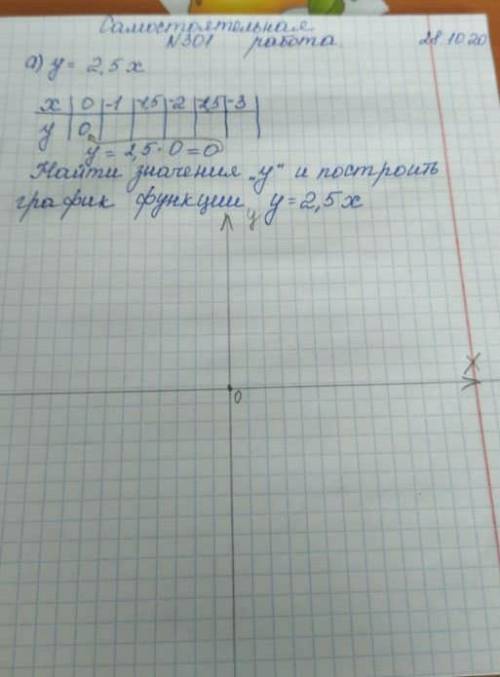 Самостоятельная
N301 работа 28.10.20
а) y = 2,5x
x | 0 | -1 | -1,5 | -2 | -2,5 | -3 |
y | 0 |
y = 2,5 · 0 = 0
Найти значения „y“ и построить
график функции y = 2,5x
y
x
0